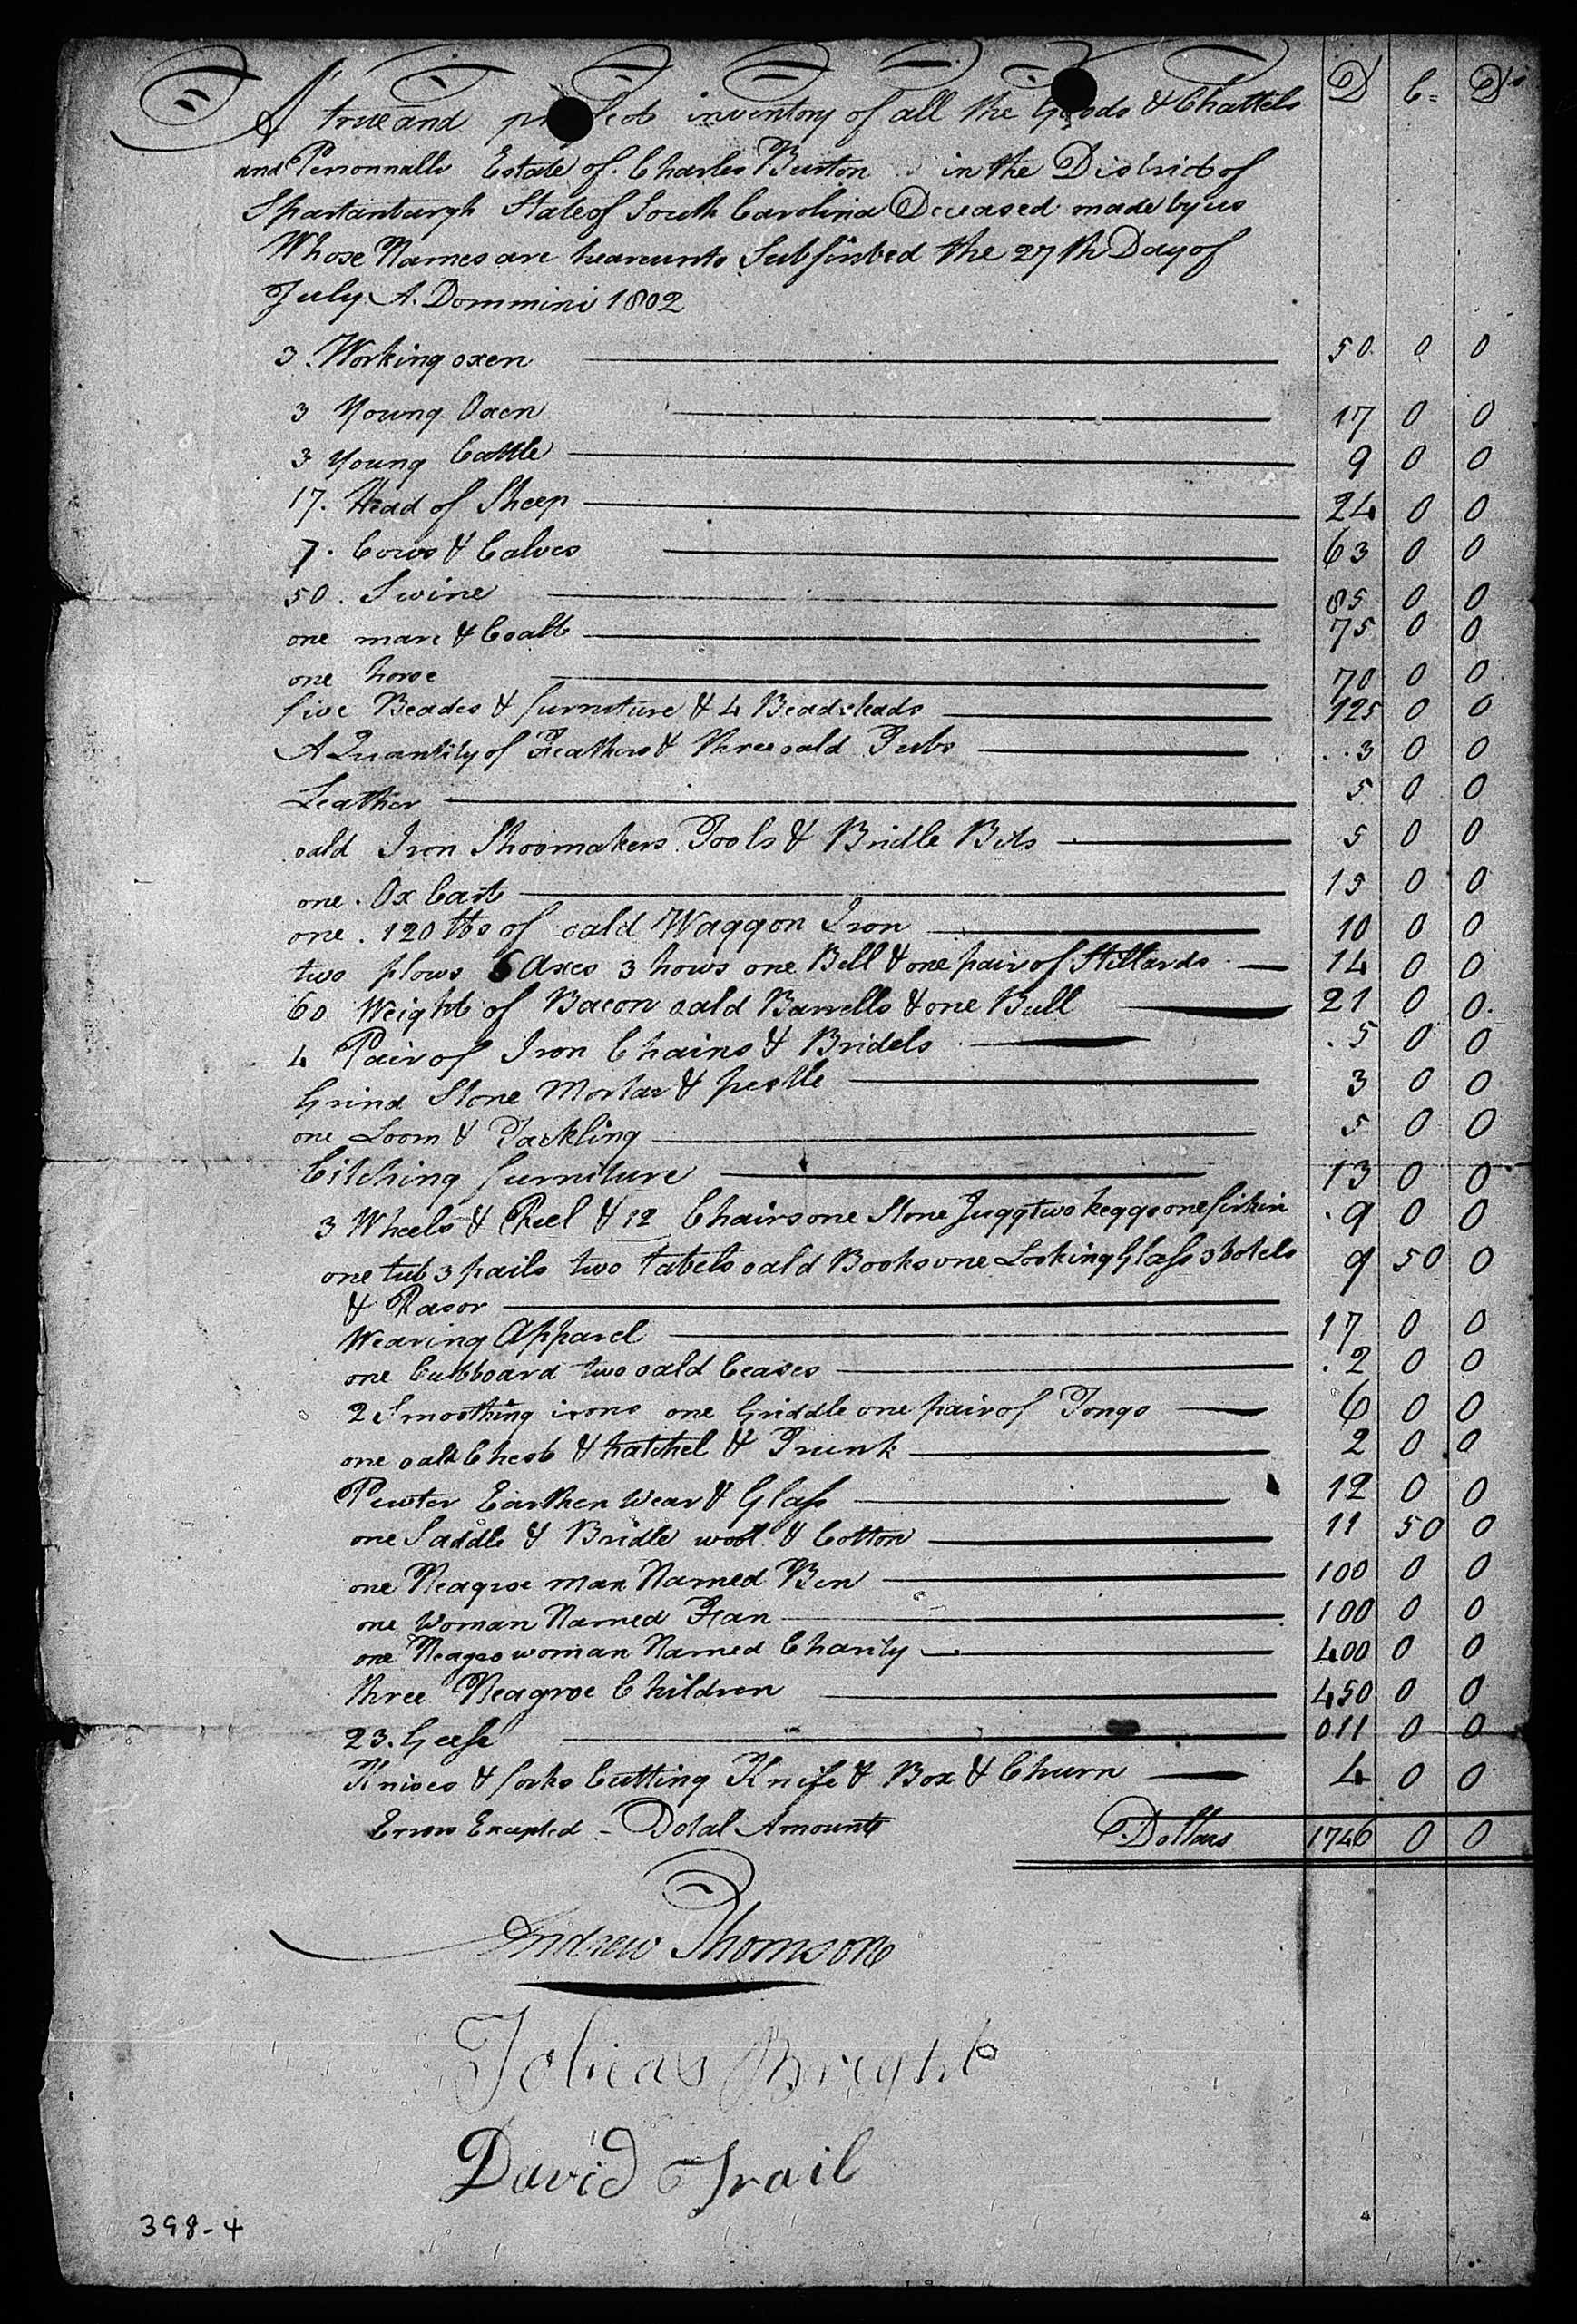 D C= Ds
A true and prefect inventory of all the Goods & Chattels
and Personnalle Estate of Charles Burton in the District of
Spartanburgh State of South Carolina Deceased made by us
Whose Names are heareunto Subscribed the 27th Day of
July A. Dommini 1802
3. Working oxen 50 0 0
3 Young Oxen 17 0 0
3 Young Cattle 9 0 0
17. Head of Sheep 24 0 0
7. Cows & Calves 63 0 0
50. Swine 85 0 0
one mare & Coalt 75 0 0
one horse 70 0 0
five Beades & furniture & 4 Beadsteads 125 0 0
A Quantity of Feathers & three oald Tubs 3 0 0
Leather 5 0 0
oald Iron Shoomakers Tools & Bridle Bits 5 0 0
one. Ox Cart 15 0 0
one. 120 lbs of oald Waggon Iron 10 0 0
two plows 6 Axes 3 hows one Bell & one pair of Stillards 14 0 0
60 Weight of Bacon oald Barrells & one Bull 21 0 0
4 Pair of Iron Chains & Bridels 5 0 0
Grind Stone Mortar & pestle 3 0 0
one Loom & Tackling 5 0 0
Citching furniture 13 0 0
3 Wheels & Reel & 12 Chairs one Stone Jugg two keggs one firkin 9 0 0
one tub 3 pails two tabels oald Books one Looking Glass 3 botels 9 50 0
& Rasor
Wearing Apparel 17 0 0
one Cubboard two oald Ceases 2 0 0
2 Smoothing irons one Griddle one pair of Tongs 6 0 0
one oald Chest & hatchel & Trunk 2 0 0
Pewter Earthen Wear & Glass 12 0 0
one Saddle & Bridle wool & Cotton 11 50 0
one Neagroe man Named Ben 100 0 0
one Woman Named Fan 100 0 0
one Neagro woman Named Charity 400 0 0
three Neagroe Children 450 0 0
23. Geese 011 0 0
Knives & forks Cutting Knife & Box & Churn 4 0 0
Errors Excepted - Dotal Amounts Dollars 1746 0 0
Andrew Thomson
Tobias Bright
David Trail
398-4